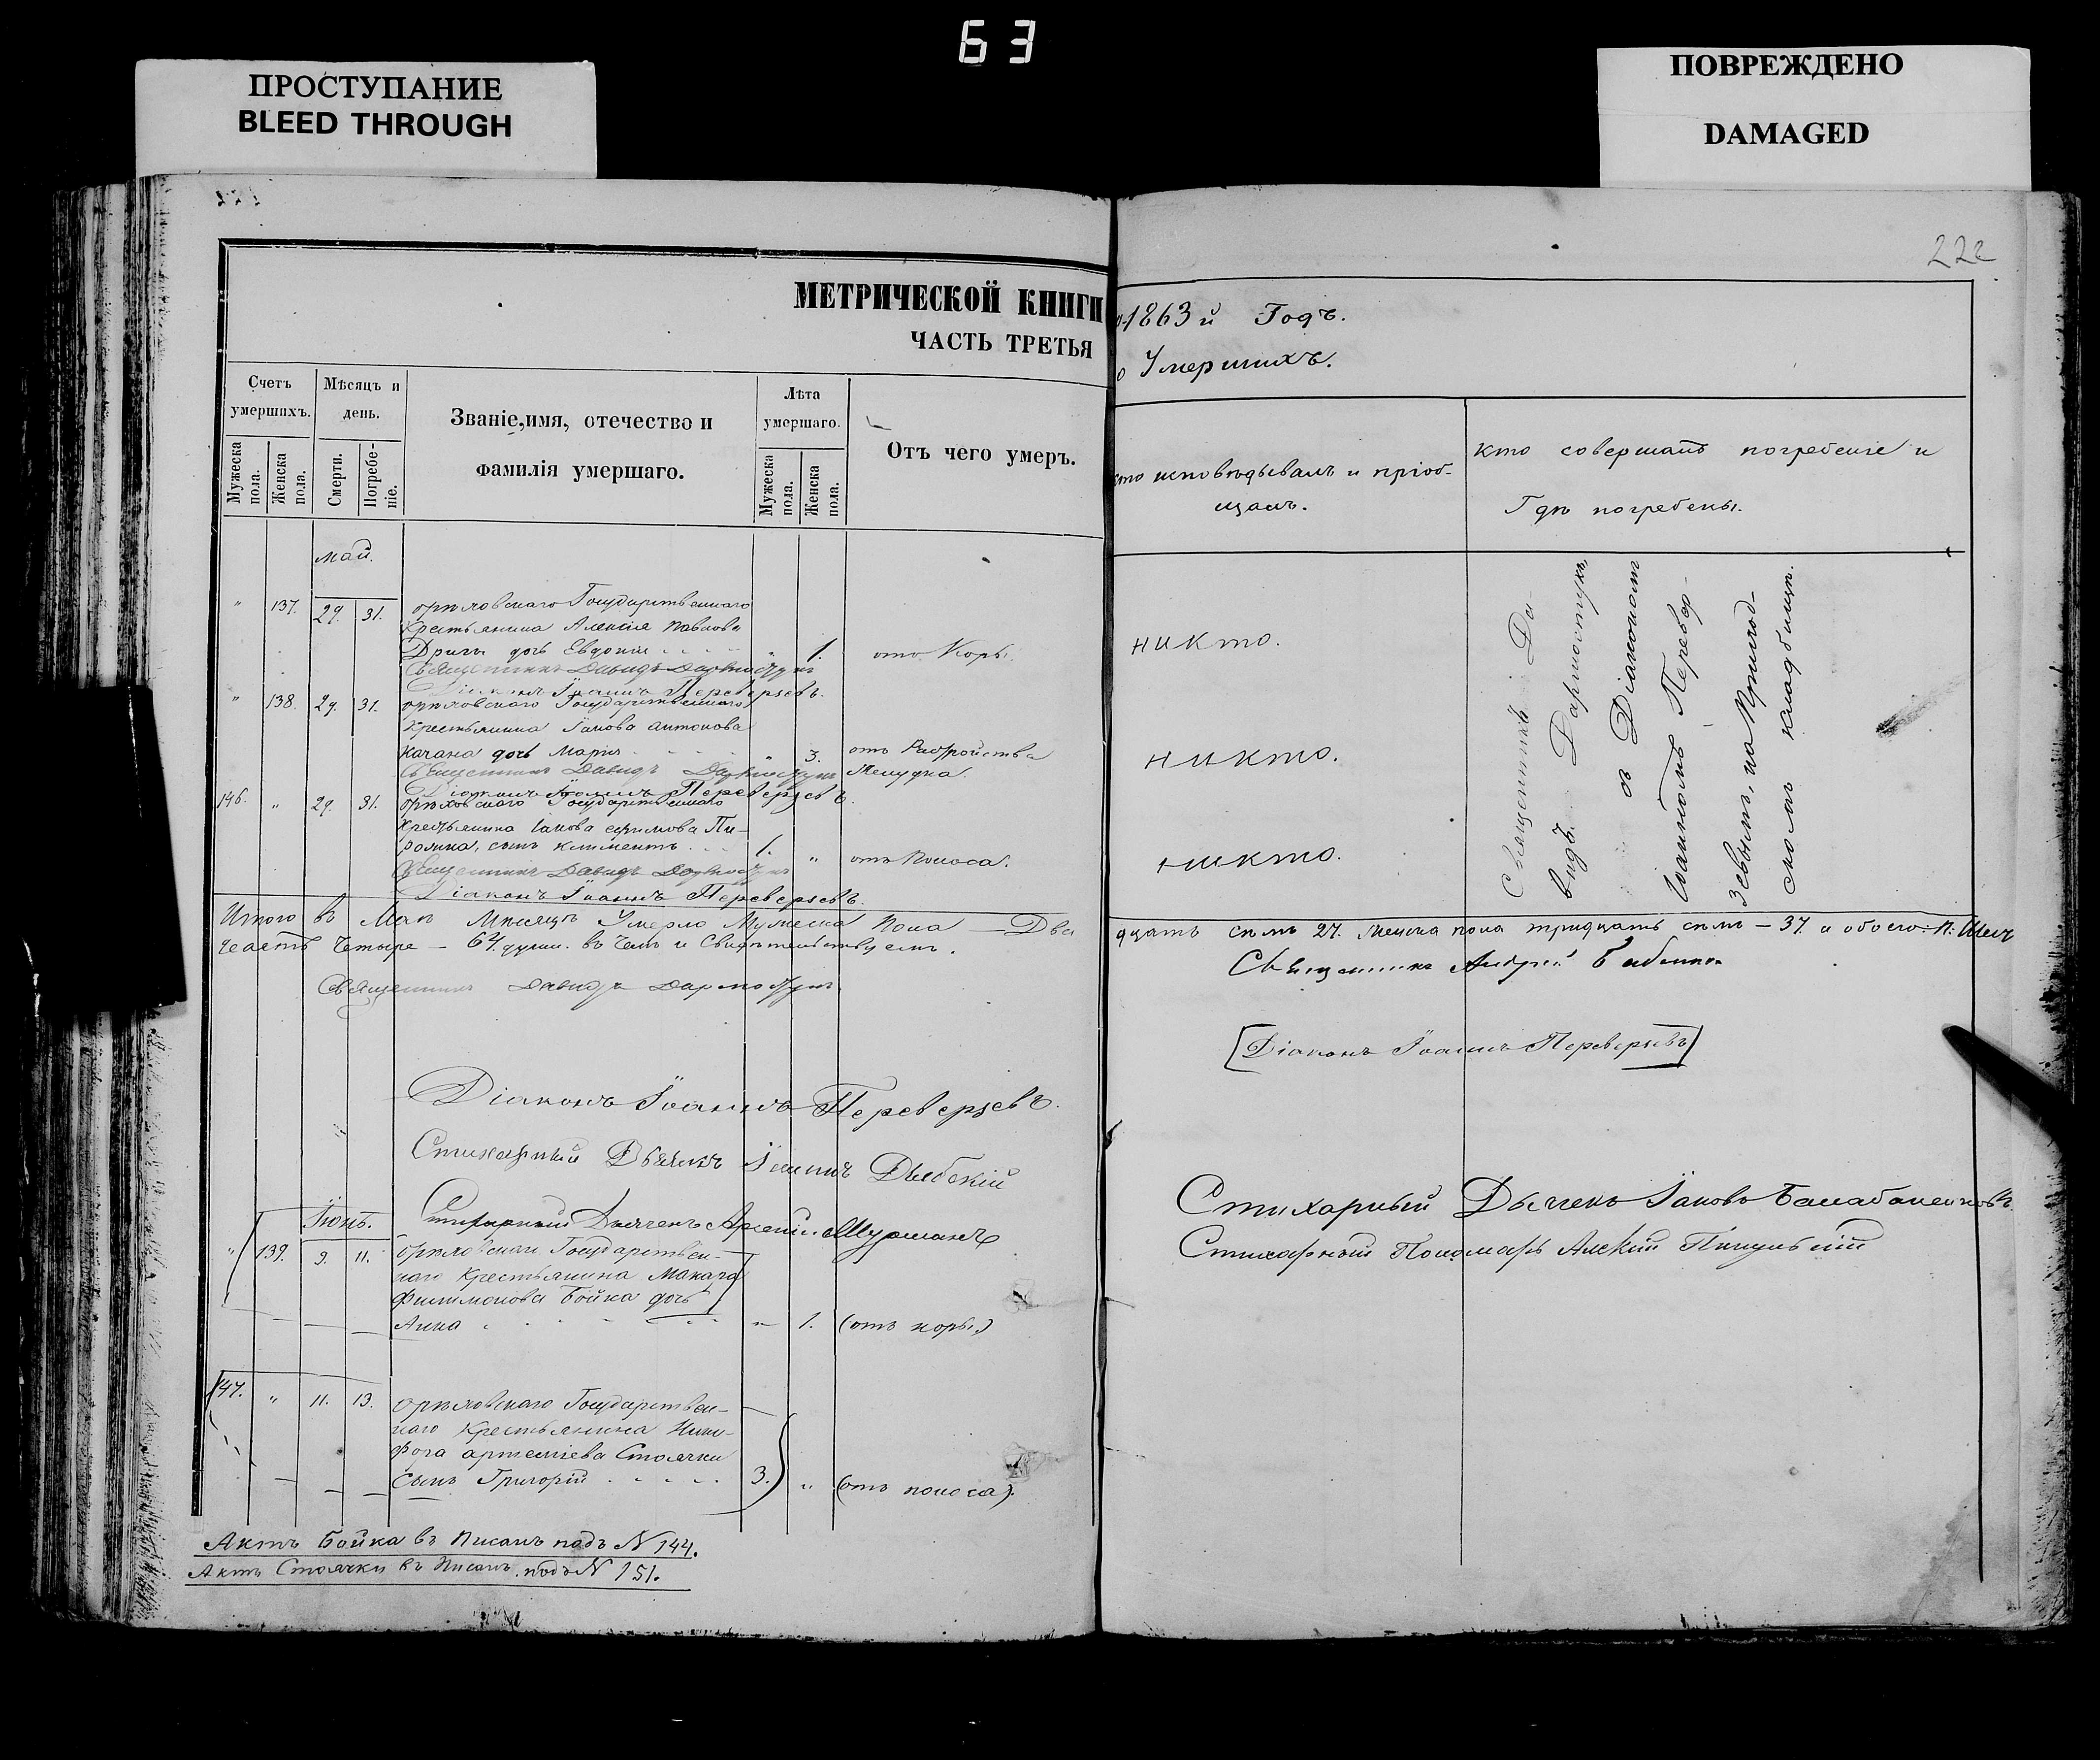 63
ПРОСТУПАНИЕ
BLEED THROUGH
ПОВРЕЖДЕНО
DAMAGED
МЕТРИЧЕСКОЙ КНИГИ
ЧАСТЬ ТРЕТЬЯ
Счетъ умершихъ.
Мужеска пола.
Женска пола.
Мѣсяцъ и день.
Смерти.
Погребеніе.
Званіе, имя, отечество и
фамилія умершаго.
Лѣта умершаго.
Мужеска пола.
Женска пола.
Отъ чего умеръ.
май.
" 137. 29. 31. орѣховскаго Государственнаго
Крестьянина Алексія Павлова
Дриги дочь Евдокія " 1. отъ Коры.
Священникъ Давидъ Дармостукъ
Діаконъ Іоаннъ Переверзевъ.
" 138. 29. 31. орѣховскаго Государственнаго
Крестьянина Іакова антонова
Качана дочь Марія " 3. отъ Разтройства
Желудка.
Священникъ Давидъ Дармостукъ
Діаконъ Іоаннъ Переверзевъ.
146. " 29. 31. орѣховскаго Государственнаго
Крестьянина Іакова ефимова Пи-
рожка, сынъ климентъ 1. " отъ Поноса.
Священникъ Давидъ Дармостукъ
Діаконъ Іоаннъ Переверзевъ.
Итого въ Маѣ Мѣсяцѣ Умерло Мужеска Пола — Два
тьдесятъ четыре — 64. души. въ чемъ и Свидѣтельствуемъ.
Священникъ Давидъ Дармостукъ.
Діаконъ Іоаннъ Переверзевъ.
Стихарный Дьячекъ Іоаннъ Дыбскій
Стихарный Дьячекъ Арсеній Мурманъ
Іюнь.
" 139. 9. 11. Орѣховскаго Государствен-
наго Крестьянина Макара
Филимонова Бойка дочь
Анна " 1. (отъ коры.)
147. " 11. 13. орѣховскаго Государствен-
наго Крестьянина Ники-
фора артеміева Стоячки
Сынъ Григорій 3. " (отъ поноса).
Актъ Бойка въ Писанъ подъ N 144.
Актъ Стоячки въ Писанъ подъ N 151.
222
1863й Годъ.
о Умершихъ.
кто исповѣдывалъ и пріоб-
щалъ.
Кто совершалъ погребеніе и
Гдѣ погребены.
никто.
никто.
никто.
Священникъ Да-
видъ Дармостукъ,
съ Діакономъ
Іоанномъ Перевер-
зевымъ, на Приход-
скомъ кладбищѣ.
дцать семь 27. Женска пола тридцать семь — 37. и обоего. п. Шес
Священникъ Андрей Бабенко
[Діаконъ Іоаннъ Переверзевъ]
Стихарный Дьячекъ Іаковъ Балабаненковъ.
Стихарный Пономарь Алексій